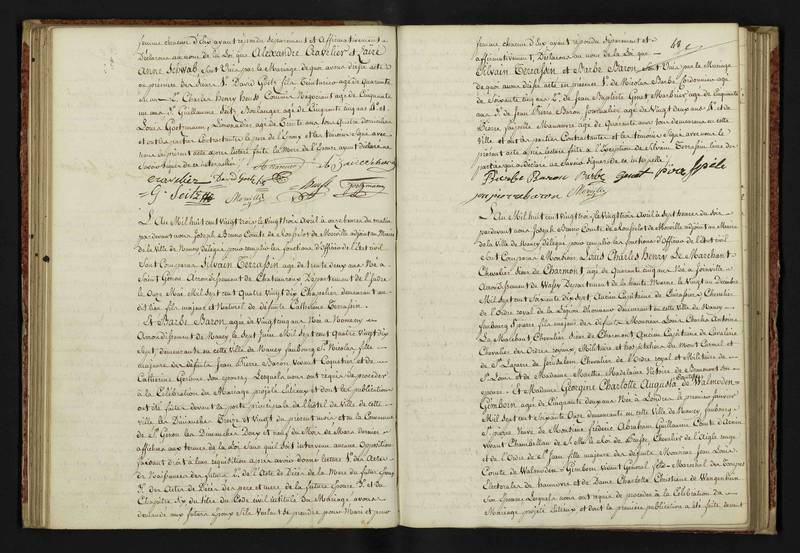 femme chacun d'Eux ayant répondu séparément et Affirmativement
Déclarons au nom de la Loi que Alexandre Cravelier et
Anne Schwab Sont Unis par le Mariage de quoi avons dressé acte
en présence des Sieurs 1º David Goetz agé de Quarante
ans 2º Charles Henry Heuss Commis Négociant agé de Cinquante
un ans 3º Guillaume Seitz Boulanger agé de Cinquante cinq ans 4º et
Louis Goetzmann, Limonadier agé de Trente ans tous Quatre domiciliés
et ont les parties Contractantes le père de l'Epoux et les témoins Signé avec
nous le présent acte après lecture faite la Mère de l'Epoux ayant déclaré ne
Cravelier David Goetz
G. Seitz Morville Heuss Goetzmann
L'An Mil huit cent Vingt trois, le Vingt trois Avril à onze heures du matin
pardevant nous Joseph Bruno Comte de Morville adjoint au Maire
de la Ville de Nancy délégué pour remplir les fonctions d'Officier de l'état civil
Sont Comparus Silvain Terrassin agé de trente deux ans Né à
Saint Génou Arrondissement de Chateauroux Département de l'Indre
le Onze Mai Mil Sept cent Quatre Vingt dix Chapelier demeurant au
dit lieu fils majeur et Naturel de défunte Catherine Terrassin.
Et Barbe Baron agée de Vingt cinq ans Née à Nomeny
Arrondissement de Nancy le Sept Juin Mil Sept cent Quatre Vingt dix
Sept demeurante en cette Ville de Nancy faubourg St Nicolas fille
majeure des défunts Jean Pierre Baron Vivant Coquetier et de
Catherine Son épouse, Lesquels nous ont requis de procéder
à la Célébration du Mariage projeté Entreux et dont les publications
ont été faites devant la porte principale de l'hôtel de Ville de cette
Ville les Dimanches Treize et Vingt du présent mois et en la Commune
de St Génou les Dimanches Deux et neuf du Mois de Mars dernier
affichées aux termes de la Loi Sans quil Soit intervenu aucune Opposition
faisant Droit à leur réquisition après avoir donné lecture 1º des Actes
de Naissance des futurs 2º de l'Acte de Décès de la Mère du futur Epoux
3º des Actes de Décès des père et mère de la future Epouse 4º et du
Chapitre Six du titre du Code civil intitulé du Mariage avons
demandé aux futurs Epoux S'ils Veulent Se prendre pour Mari et pour
femme chacun d'Eux ayant répondu Séparément et
affirmativement, Déclarons au nom de la Loi que
48
Silvain Terrassin et Barbe Baron Sont Unis par le Mariage
de quoi avons dressé acte en présence 1º de Nicolas Barbe Cordonnier agé
de Soixante cinq ans 2º de Jean Baptiste Gouet Marbrier agé de Cinquante
ans 3º de Jean Pierre Baron Journalier agé de Vingt deux ans 4º et de
Pierre Manœuvre agé de Quarante ans tous demeurans en cette
Ville et ont les parties Contractantes et les témoins Signé avec nous le
présent acte après lecture faite à l'Exception de Silvain Terrassin l'une des
parties qui a déclaré ne Savoir Signer de ce interpellé
Barbe Baron Barbe Gouet
jean pierre baron Morville
L'An Mil huit cent Vingt trois, le Vingt trois Avril à Sept heures du Soir
pardevant nous Joseph Bruno Comte de Morville adjoint au Maire
de la Ville de Nancy délégué pour remplir les fonctions d'Officier de l'état civil
Sont Comparus Monsieur Louis Charles Henry Le Marchant
Chevalier Sieur de Charmont agé de Quarante cinq ans Né à Joinville
Arrondissement de Wassy Département de la haute Marne le Vingt un décembre
Mil Sept cent Soixante dix Sept Ancien Capitaine de Cuirassiers Chevalier
de l'Ordre royal de la Légion d'honneur demeurant en cette Ville de Nancy
faubourg St pierre fils majeur des défunts Monsieur Louis Charles Antoine
Le Marchant Chevalier Sieur de Charmont Ancien Capitaine de Cavalerie
Chevalier des Ordres royaux, Militaires et hospitaliers du Mont Carmel et
de St Lazare de Jérusalem Chevalier de l'Ordre royal et Militaire de
St Louis et de Madame Marthe Madelaine Victoire de Beaumont Son
épouse. Et Madame Georgine Charlotte Augusta de Walmoden
Gimborn agée de Cinquante deux ans Née à Londres le premier février
Mil Sept cent Soixante Onze demeurant en cette Ville de Nancy, faubourg
St pierre Veuve de Monsieur Fréderic Abraham Guillaume Comte d'Arnim
Vivant Chambellan de S. M. le Roi de Prusse, Chevalier de l'Aigle rouge
et de l'Ordre de St Jean fille majeure des défunts Monsieur Jean Louis
Comte de Walmoden Gimborn Vivant Général feld-Maréchal des Troupes
Electorales de hannovre et de Dame Charlotte Christiane de Wangenheim
Son épouse Lesquels nous ont requis de procéder à la Célébration du
Mariage projeté Entreux et dont la première publication a été faite devant